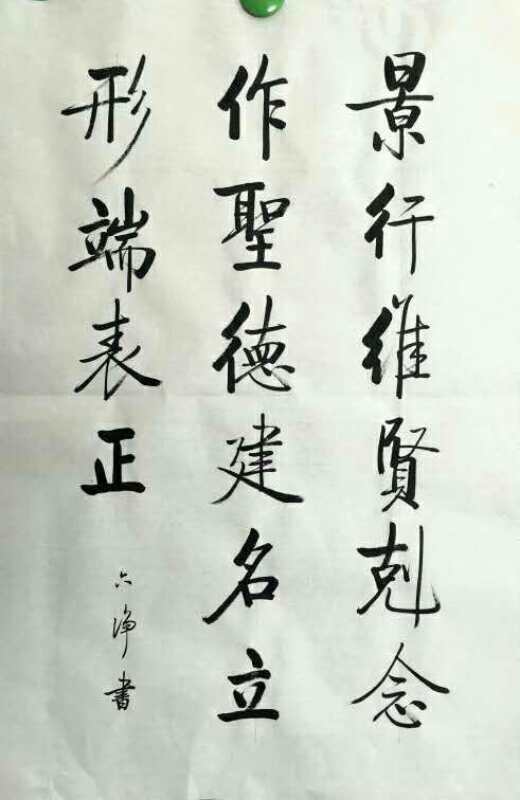 景行維賢剋念
作聖德建名立
形端表正
六净書